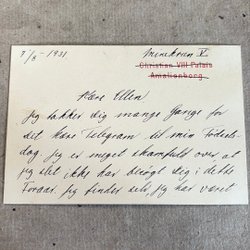 7/8-1931
Christian VIII Palais
Amalienborg.
Kære Ellen
Jeg takker dig mange Gange for
det kære Telegram til min Fødsels-
dag jeg er meget skamfuld over at
jeg slet ikke har besøgt dig i dette
Foraar, jeg finder selv, jeg har været